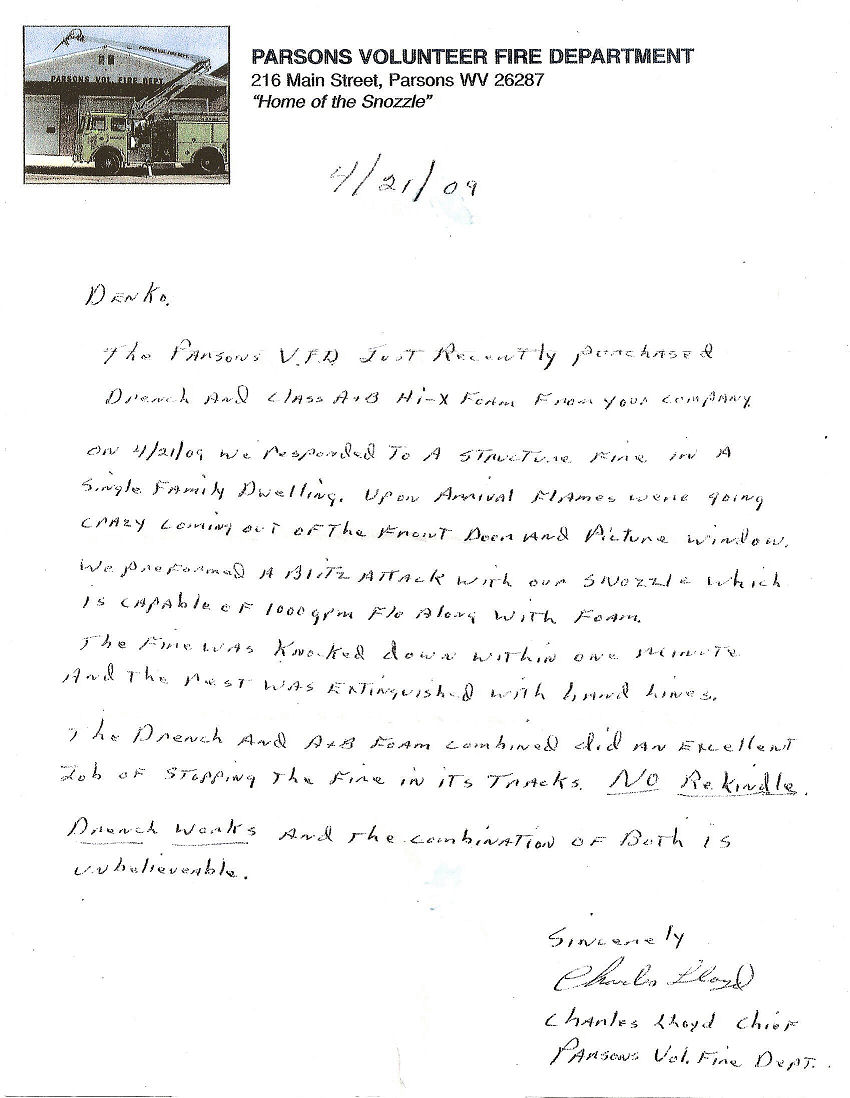 PARSONS VOL. FIRE DEPT.
PARSONS VOLUNTEER FIRE DEPARTMENT
216 Main Street, Parsons WV 26287
"Home of the Snozzle"
4/21/09
Denko.
The Parsons V.F.D Just Recently purchased
Drench And Class A+B Hi-X Foam From your company
On 4/21/09 we responded To A Structure Fire in A
Single Family Dwelling. Upon Arrival Flames were going
crazy coming out of The Front Door And Picture window.
We preformed A Blitz Attack with our Snozzle which
is capable of 1000 gpm Flo Along With Foam.
The Fire was Knocked down within one minute
And The rest was Extinguished with hand lines.
The Drench And A+B Foam combined did An Excellent
Job of Stopping The Fire in its Tracks. No Rekindle.
Drench Works And The combination of Both is
unbelieveable.
Sincerely
Charles Lloyd
Charles Lloyd Chief
Parsons Vol. Fire Dept.